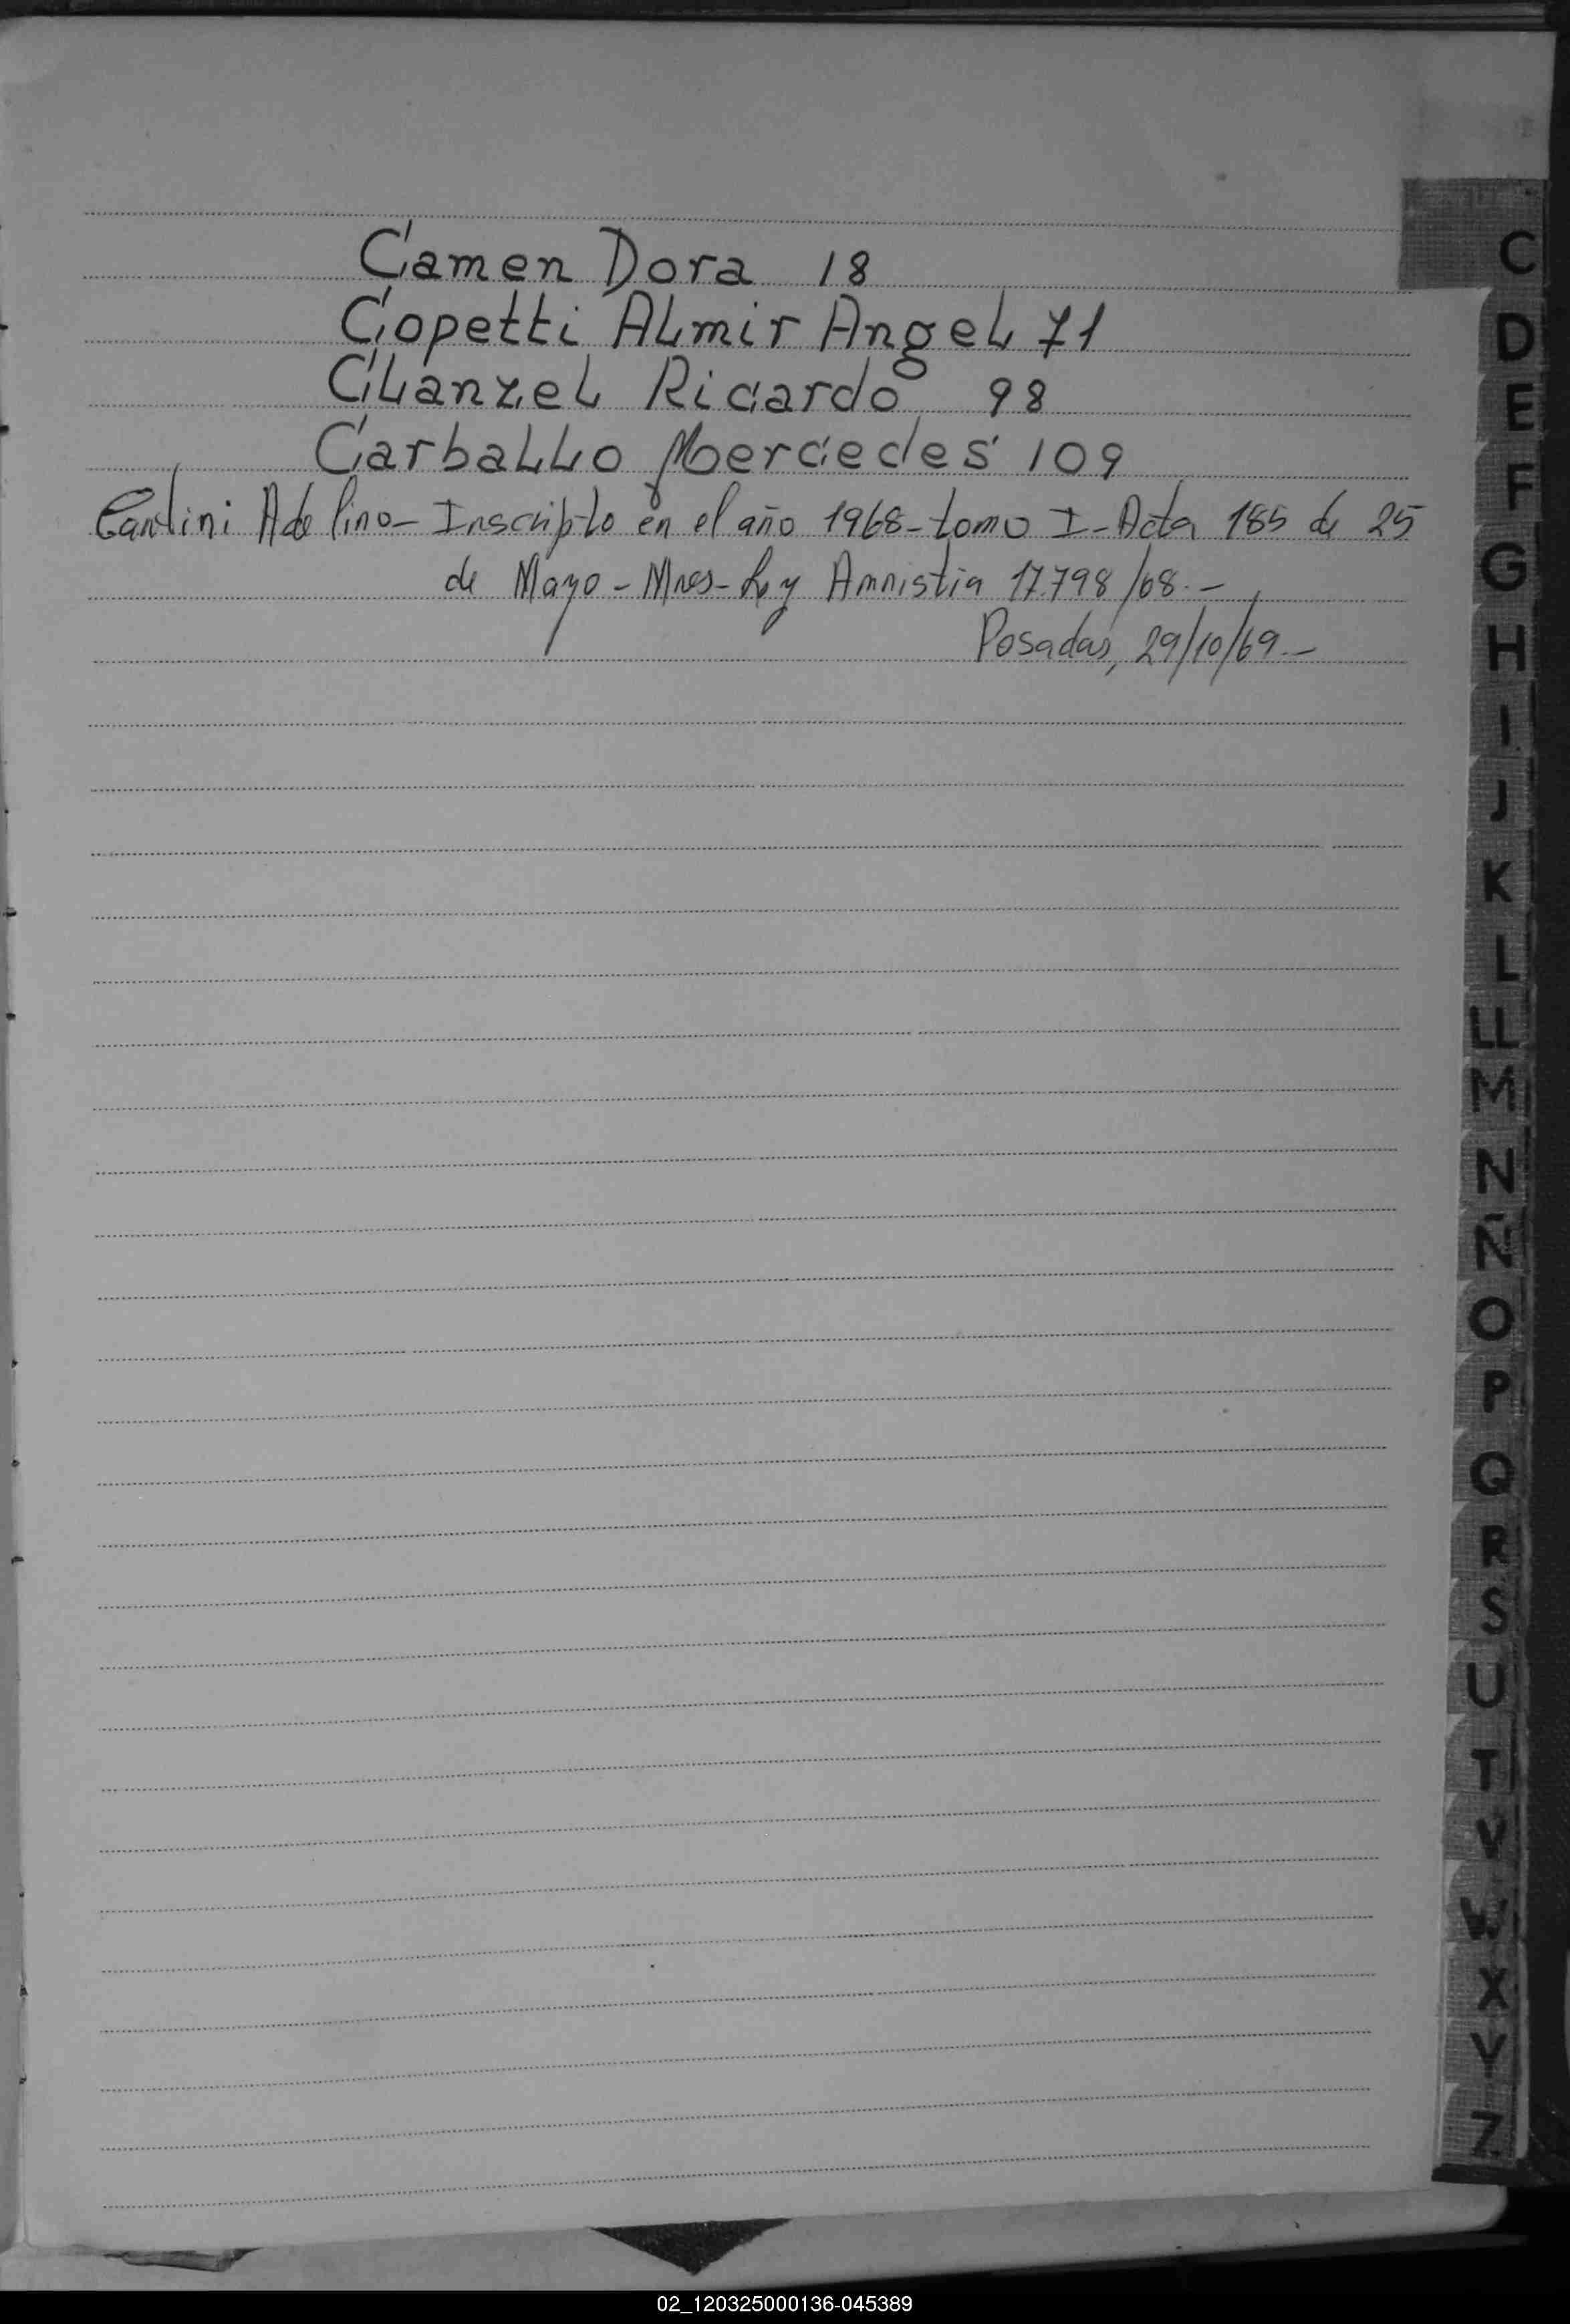 C
Camen Dora 18
Copetti Almir Angel 71
Clanzel Ricardo 98
Carballo Mercedes 109
Cantini Adelino - Inscripto en el año 1968 - tomo I - Acta 185 de 25
de Mayo - Mnes - Ley Amnistia 17.798/68.-
Posadas, 29/10/69.-
D
E
F
G
H
I
J
K
L
LL
M
N
Ñ
O
P
Q
R
S
U
T
V
W
X
Y
Z
02_120325000136-045389